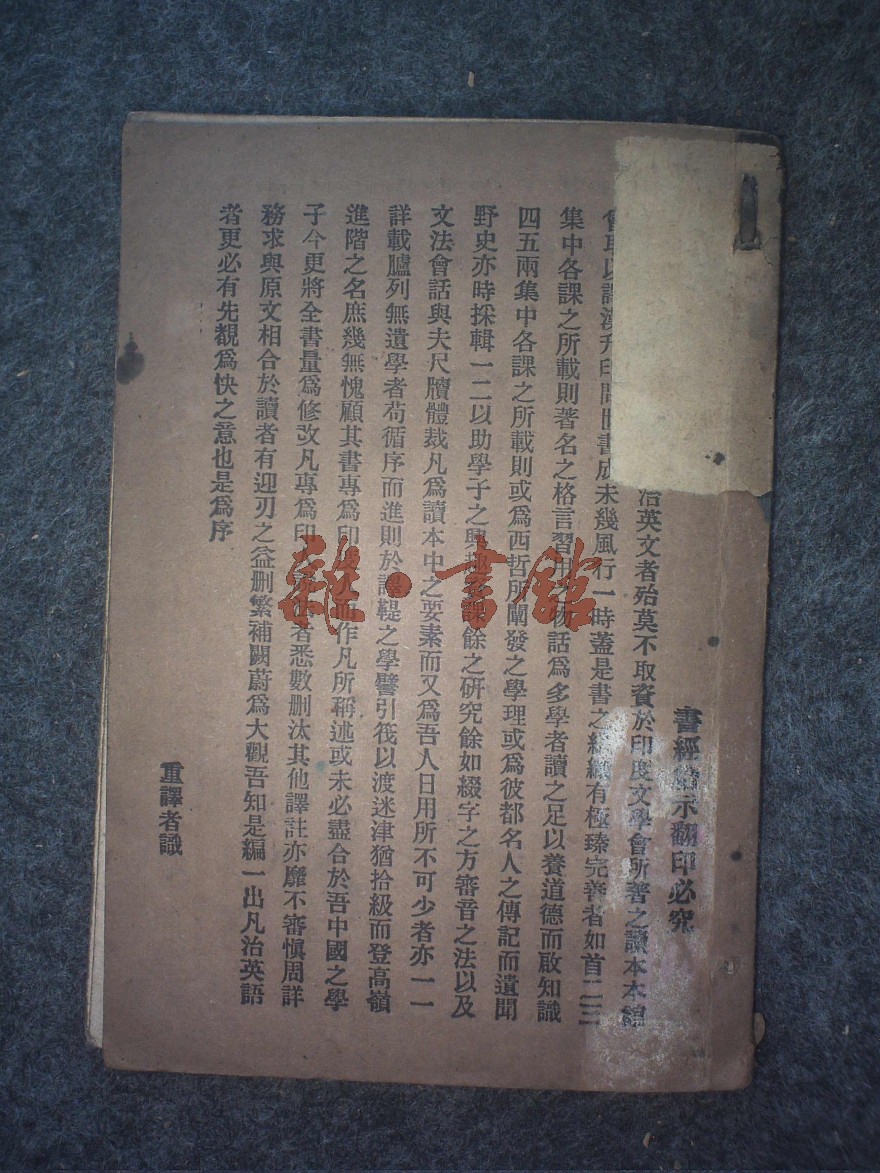 書經 示翻印必究
治英文者殆莫不取資於印度文學會所著之讀本本
會 以譯漢 印問世書成未幾風行一時蓋是書之 有極臻完善者如首二三
集中各課之所載則著名之格言習用之物話爲多學者讀之足以養道德而啟知識
四五兩集中各課之所載則或爲西哲所闡發之學理或爲彼都名人之傳記而遺聞
野史亦時採輯一二以助學子之興趣 課餘之研究餘如綴字之方審音之法以及
文法會話與夫尺牘體裁凡爲讀本中之要素而又爲吾人日用所不可少者亦一一
詳載臚列無遺學者苟循序而進則於譯鞮之學譬引筏以渡迷津猶拾級而登高嶺
進階之名庶幾無愧顧其書專爲印 人而作凡所稱述或未必盡合於吾中國之學
子今更將全書量爲修改凡專爲印 者悉數刪汰其他譯註亦靡不審愼周詳
務求與原文相合於讀者有迎刃之益刪繁補闕蔚爲大觀吾知是編一出凡治英語
者更必有先覩爲快之意也是爲序
重譯者識
雜·書館